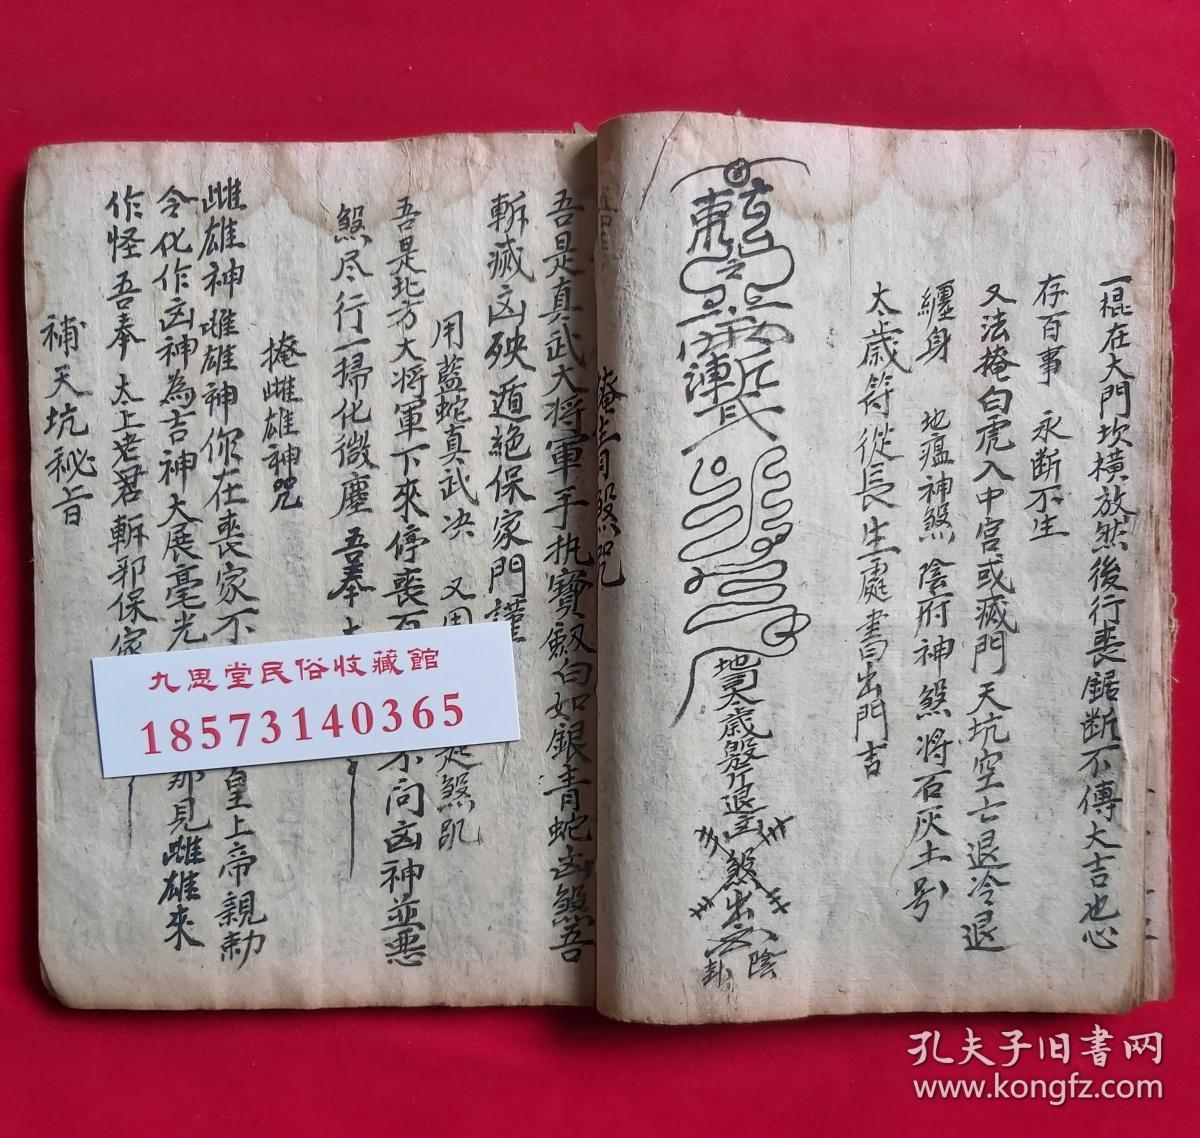 一棍在大門坎橫放然後行喪鋸断不傳大吉也心
存百事 永断不生
又法掩白虎入中宮或滅門天坑空亡退冷退
纏身 地瘟神煞 陰府神煞将石灰土号
太歲符從長生處書出門吉
地司太歲煞斤退
煞出
陰
卦
掩
煞咒
吾是真武大将軍手执寶劔白如銀青蛇凶煞吾
斬滅凶殃遁絕保家門謹
用藍蛇真武决 又用
是煞訊
吾是北方大将軍下來停喪百
不问凶神並悪
煞尽行一掃化微塵 吾奉
掩雌雄神咒
雌雄神雌雄神你在喪家不
皇上帝親勅
令化作凶神為吉神大展毫光
那見雌雄來
作怪吾奉 太上老君斬邪保家
補天坑秘旨
九思堂民俗收藏館
18573140365
孔夫子旧書网
www.kongfz.com